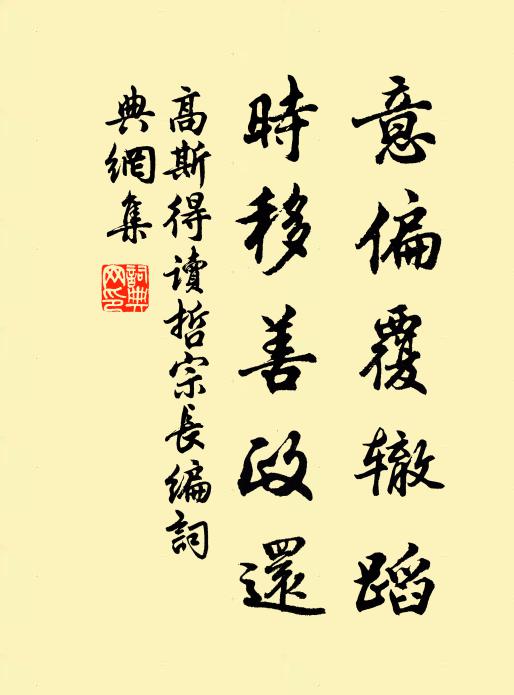 意偏覆辙蹈
時移善政還
高斯得讀哲宗長編詞
典網集
詞典網印